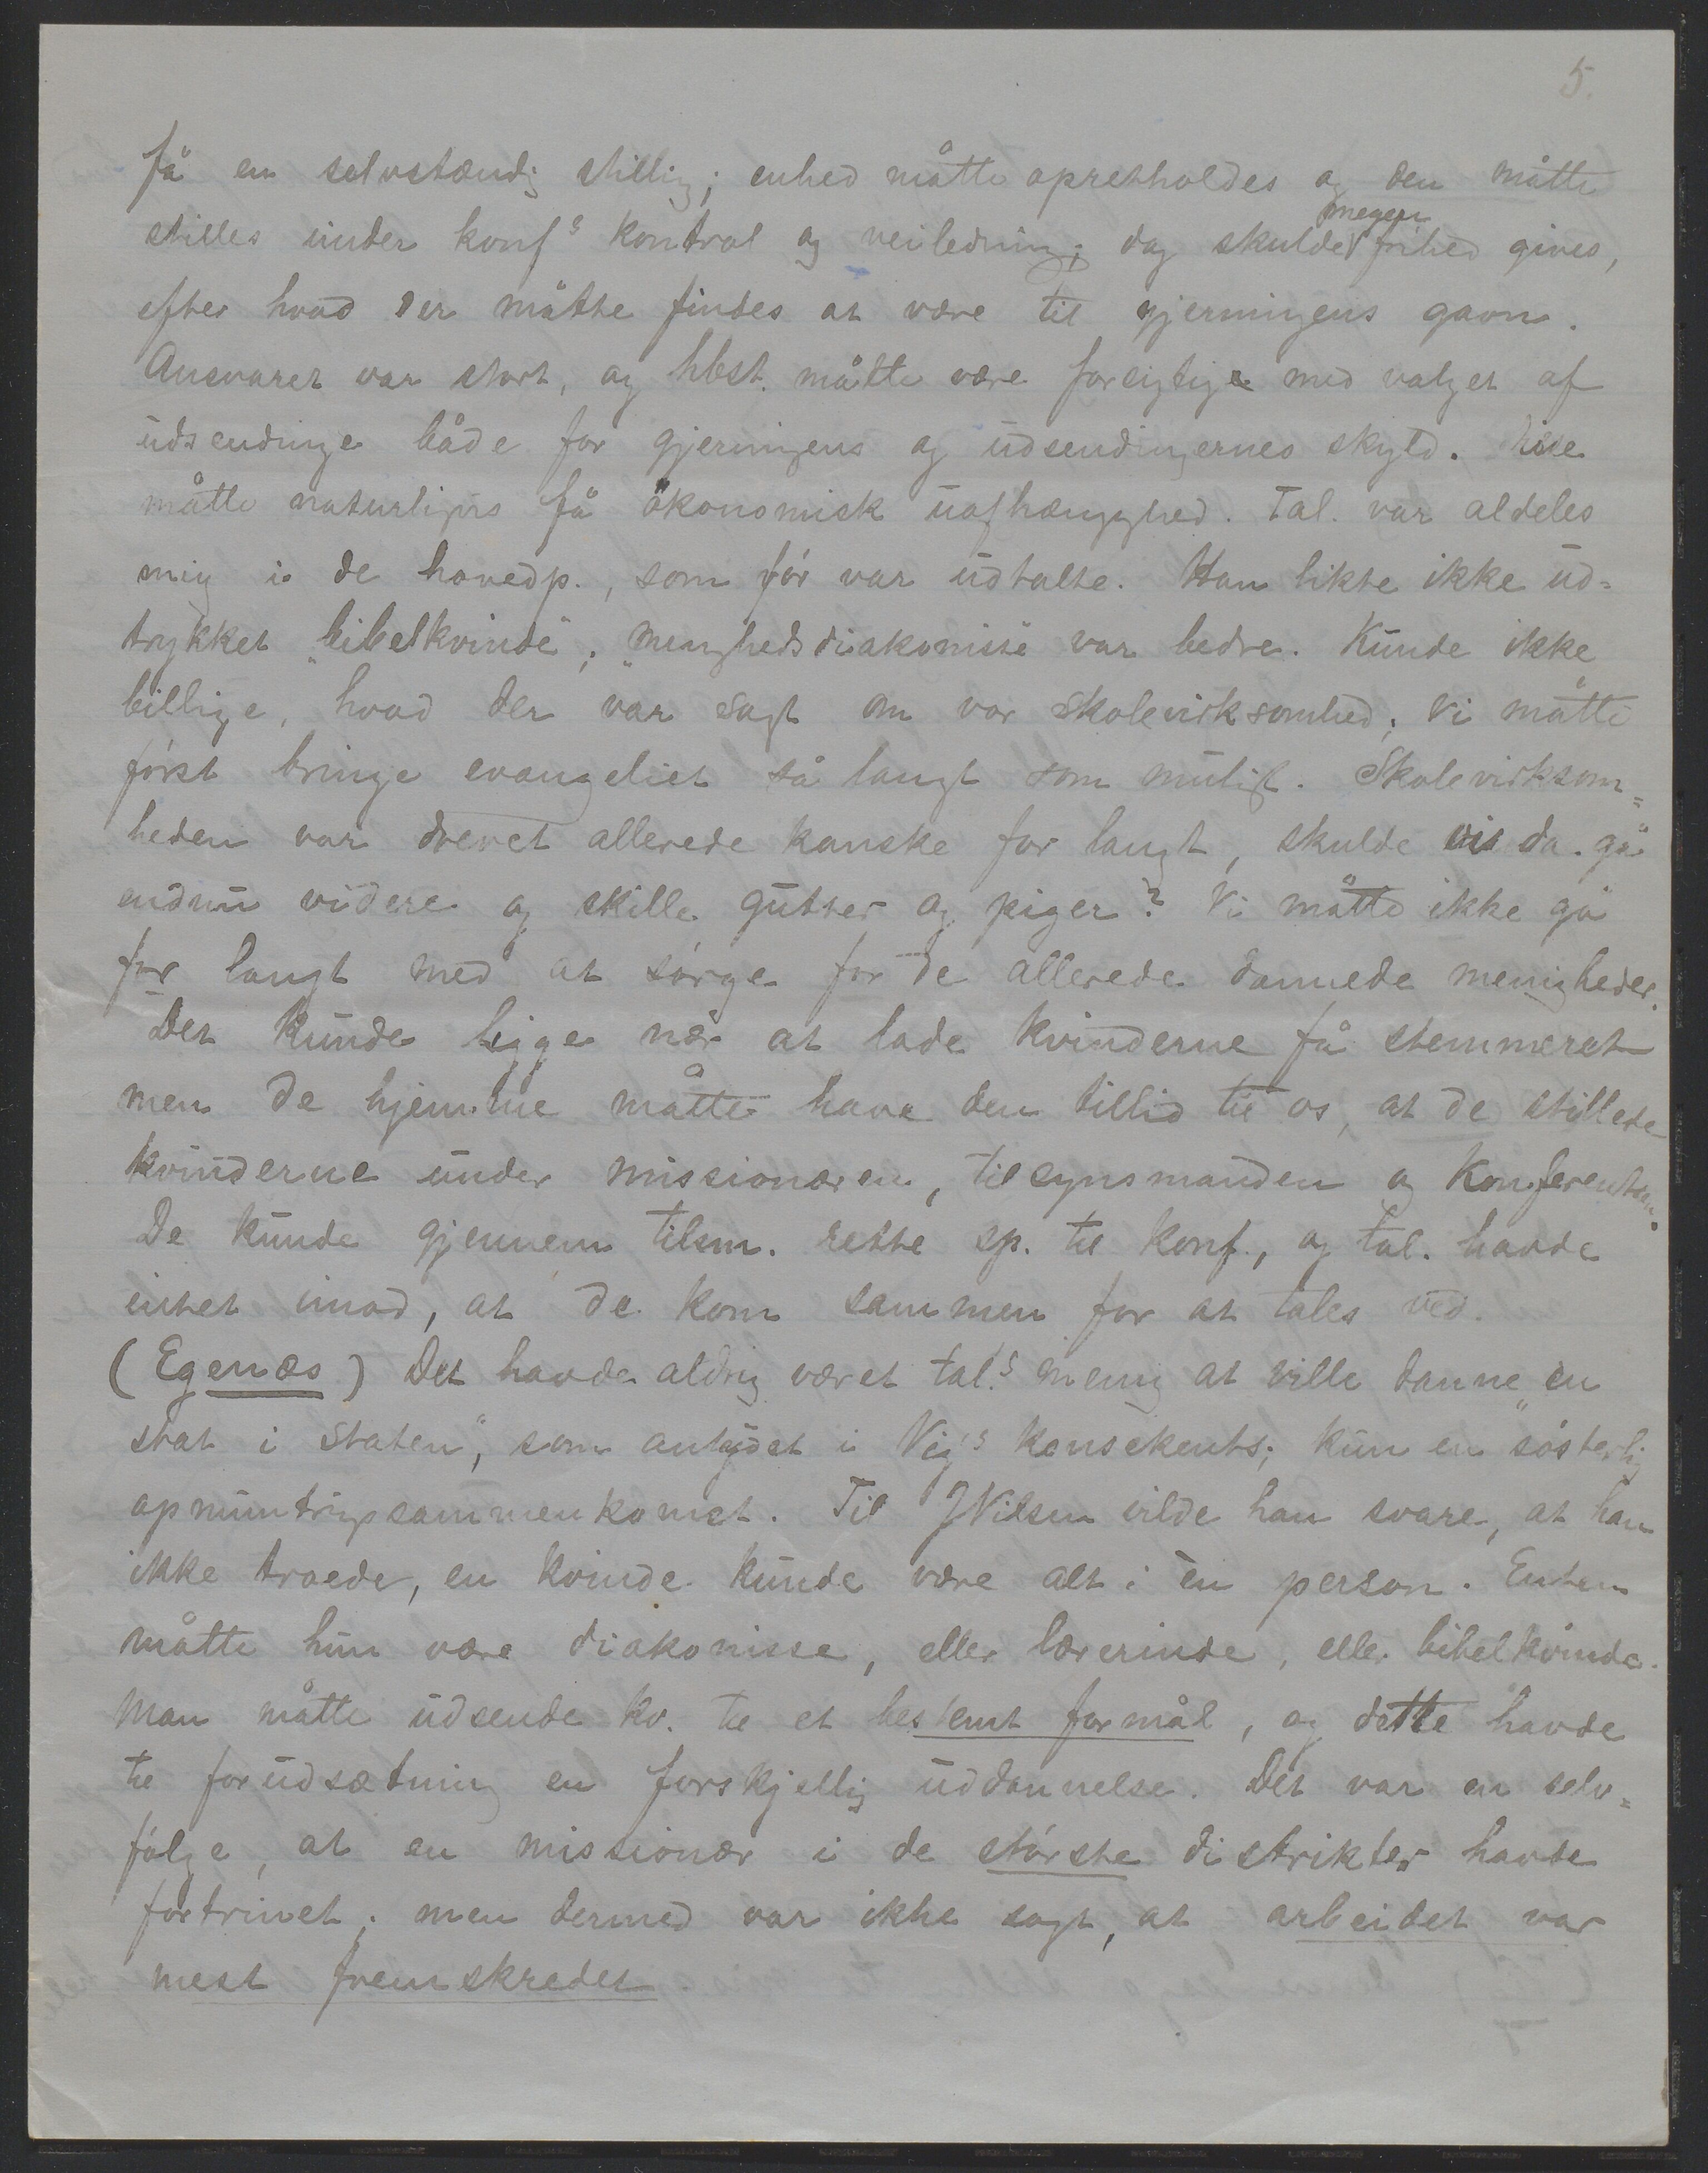 5.
få en selvstændig stillig; enhed måtte opretholdes og den måtte
stilles under konfs kontrol og veiledning; dog skulde megen frihed gives,
efter hvad der måtte findes at være til gjerningens gavn.
Ansvaret var stort, og hbst. måtte være forsigtige med valget af
udsendinge både for gjerningens og udsendingernes skyld. Disse
måtte naturligvis få økonomisk uafhængighed. Tal. var aldeles
enig i de hovedp., som før var udtalte. Han likte ikke ud=
trykket "bibelkvinde", "menighedsdiakonisse" var bedre. Kunde ikke
billige, hvad der var sagt om vor skolevirksomhed; vi måtte
først bringe evangeliet så langt som muligt. Skolevirksom=
heden var drevet allerede kanske for langt, skulde vi da gå
endnu videre og skille gutter og piger? Vi måtte ikke gå
for langt med at sørge for de allerede dannede menigheder.
Det kunde ligge nær at lade kvinderne få stemmeret
men de hjemme måtte have den tillid til os, at de stillede
kvinderne under missionæren, tilsynsmanden og Konferentsen.
De kunde gjennem tilsm. rette sp. til Konf., og tal. havde
intet imod, at de kom sammen for at tales ved.
(Egenæs) Det havde aldrig været tal.s mening at ville danne "en
stat i staten", som antydet i Vigs konsekents; kun en søsterlig
opmuntringssammenkomst. Til JNilsen vilde han svare, at han
ikke troede, en kvinde kunde være alt i én person. Enten
måtte hun være diakonisse, eller lærerinde, eller bibelkvinde.
Man måtte udsende kv. til et bestemt formål, og dette havde
til forudsætning en forskjellig uddannelse. Det var en selv=
følge, at en missionær i de største distrikter havde
fortrinet; men dermed var ikke sagt, at arbeidet var
mest fremskredet